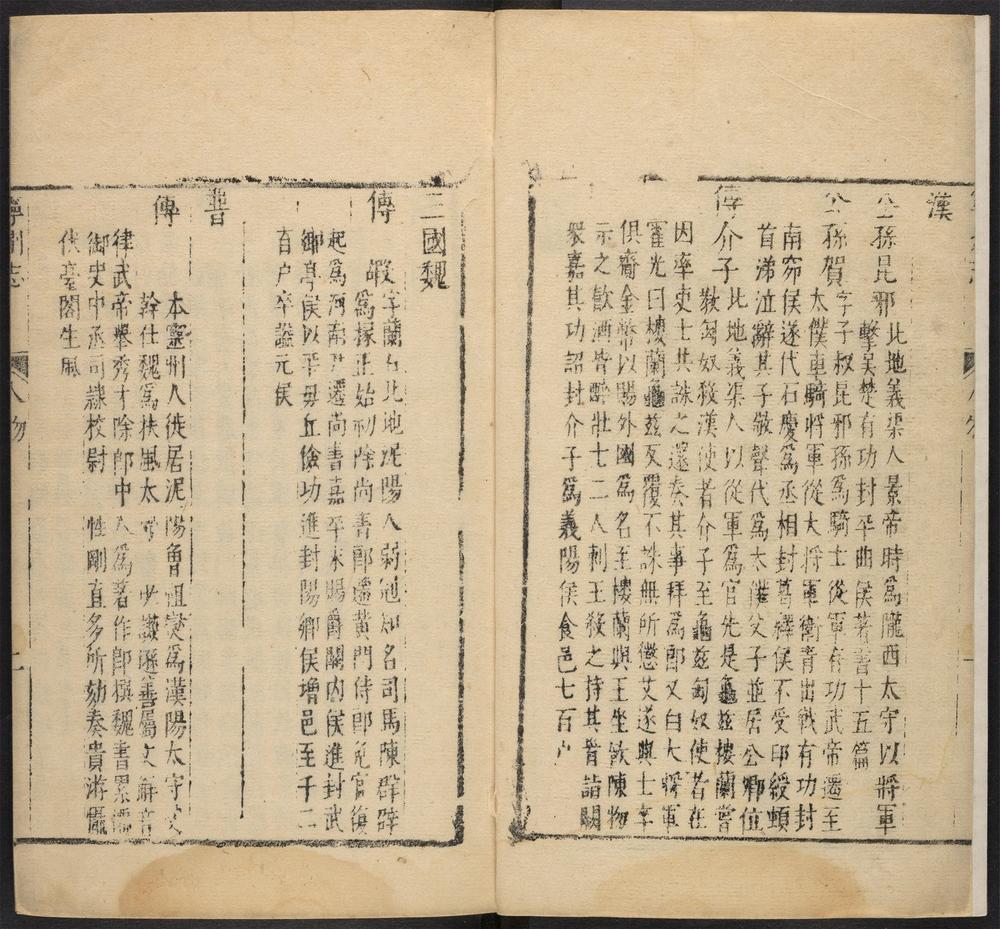 漢
公孫昆邪 北地義渠人景帝時為隴西太守以將軍
擊吳楚有功封平曲侯著書十五篇
公孫賀 字子叔昆邪孫為騎士從軍有功武帝遷至
太僕車騎將軍從大將軍衛青出戰有功封
南窌侯遂代石慶為丞相封葛繹侯不受印綬頓
首涕泣辭其子敬聲代為太僕父子並居公卿位
傅介子 北地義渠人以從軍為官先是龜兹樓蘭嘗
教匈奴殺漢使者介子至龜兹匈奴使者在
因率吏士共誅之還奏其事拜為郎又白大將軍
霍光曰樓蘭龜兹反覆不誅無所懲艾遂與士卒
俱齎金幣以賜外國為名至樓蘭與王坐飲陳物
示之飲酒皆醉壯士二人刺王殺之持其首詣闕
眾嘉其功詔封介子為義陽侯食邑七百户
三國魏
傅嘏 字蘭石北地泥陽人弱冠知名司馬陳群辟
為掾正始初除尚書郎遷黃門侍郎免官復
起為河南尹遷尚書嘉平末賜爵關内侯進封武
鄉亭侯以平毋丘儉功進封陽鄉侯增邑至千二
百户卒諡元侯
晉
傅
本靈州人徙居泥陽魯祖燮為漢陽太守父
幹仕魏為扶風太守 少 善屬文解音
律武帝舉秀才除郎中 為著作郎撰魏書累遷
御史中丞司隸校尉 性剛直多所劾奏貴游懾
伏臺閣生風
寧州志
人物